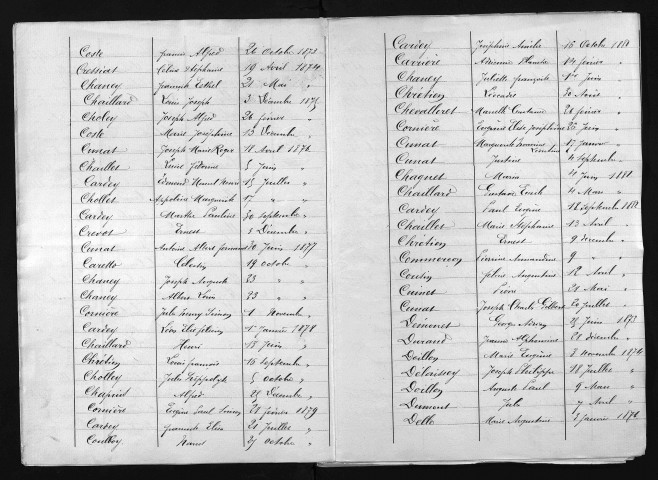 Coste Jeannie Alfred 26 Octobre 1873
Cressiat Celina Stéphanie 19 Avril 1874
Chaney Jeannide Esther 21 Mai "
Chaillard Louis Joseph 3 Décembre 1875
Choley Joseph Alfred 26 février "
Coste Marie Joséphine 13 Décembre "
Cunat Joseph Marie Roger 11 Avril 1876
Chaillet Louise 5 Juin "
Cardey Edmond Henri 15 Juillet "
Chollet Marguerite 17 " "
Cardey Marthe Pauline 30 septembre "
Crevot Ernest 3 Décembre "
Cunat Antoine Albert 20 Juin 1877
Caretto Celestin 19 octobre "
Chaney Joseph Auguste 23 " "
Chaney Albert Louis 23 " "
Cornière Jules 1 Novembre "
Cardey Léon 1 Janvier 1878
Chaillard Henri 15 Juin "
Chrétien Louis François 16 septembre "
Cholley Jules Hippolyte 5 octobre "
Chapuis Alfred 25 Décembre "
Cornière Eugène Paul 21 février 1879
Cardey Jeannide Elise 21 Juillet "
Coulboy 27 octobre "
Cardey Joséphine Amélie 15 Octobre 1880
Carrière Adrienne Blanche 14 février "
Chaney Juliette Françoise 1er Juin "
Chrétien Léocadie 30 Août "
Chevalleret Marcelle Constance 26 février "
Cornière Eugénie Elise Joséphine 25 Juin "
Cunat Marguerite 17 Janvier "
Cunat Justine 4 septembre "
Chagnet Maria 4 Juin 1881
Chaillard Gustave Emile 4 Mai "
Cardey Paul Eugène 12 septembre 1882
Chaillet Marie Stéphanie 13 Avril "
Chrétien Ernest 9 décembre "
Commerson 9 " "
Coulin Augustine 12 Avril "
Cuinet Pierre 21 Mai "
Cunat Joseph Charles Gilbert 20 Juillet "
Demonet Georges Adrien 29 Juin 1873
Durand Jeannie Alphonsine 28 décembre "
Doillon Marie Eugénie 8 Novembre 1874
Delaissey Joseph Philippe 18 Juillet "
Doillon Auguste Paul 9 Mars "
Dumont Jules 7 Avril "
Dette Marie Augustine 3 Janvier 1876